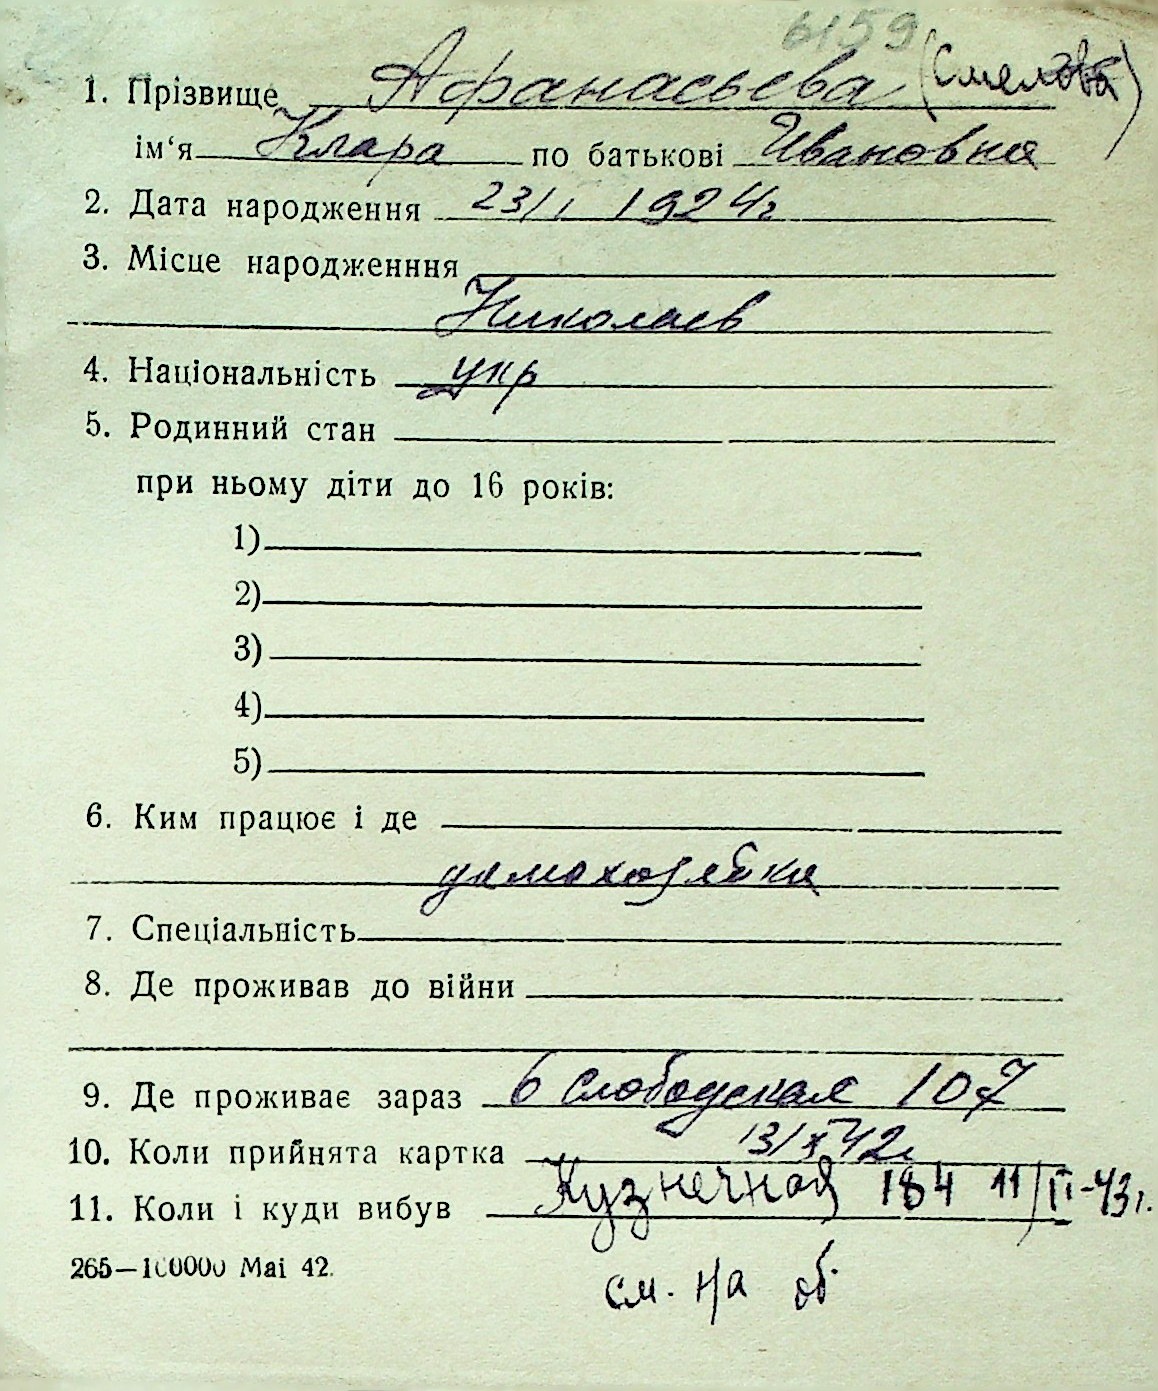 6159
1. Прізвище Афанасьева (Смелова)
ім'я Клара по батькові Ивановна
2. Дата народження 23/I 1924г
3. Місце народженння
Николаев
4. Національність укр
5. Родинний стан
при ньому діти до 16 років:
1)
2)
3)
4)
5)
6. Ким працює і де
домохозяйка
7. Спеціальність
8. Де проживав до війни
9. Де проживає зараз 6 Слободская 107
10. Коли прийнята картка 13/X 42г
11. Коли і куди вибув Кузнечная 184 11/II-43г.
265—100000 Mai 42.
см. н/а об.